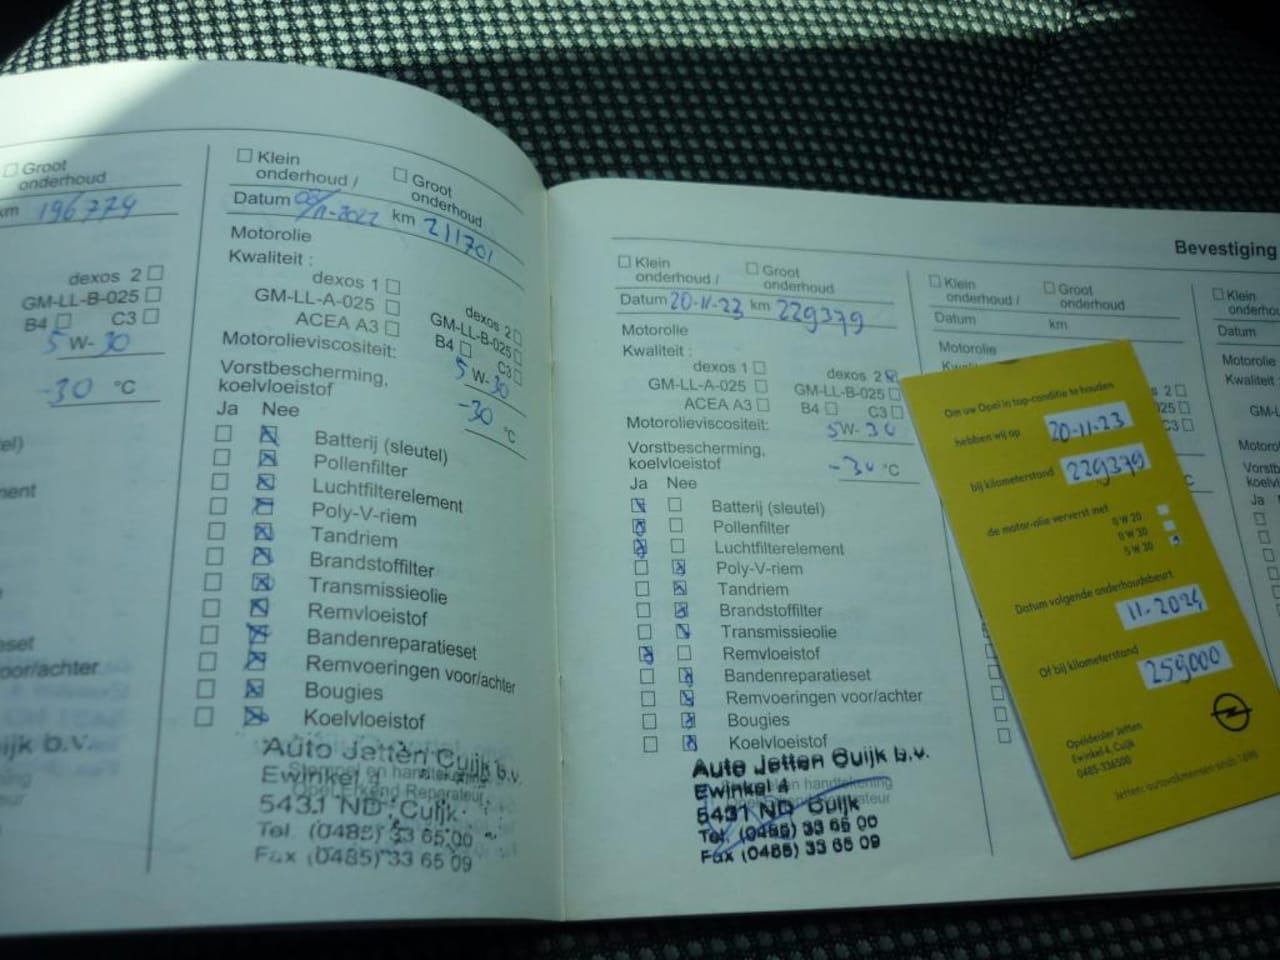 Groot
onderhoud
km 196774
dexos 2
GM-LL-B-025
B4 C3
5 W- 30
-30 °C
voor/achter
b.v.
Klein
onderhoud / Groot
onderhoud
Datum 08/11-2022 km 211701
Motorolie
Kwaliteit :
dexos 1 dexos 2
GM-LL-A-025 GM-LL-B-025
ACEA A3 B4 C3
Motorolieviscositeit: 5 W-30
Vorstbescherming,
koelvloeistof -30 °C
Ja Nee
Batterij (sleutel)
Pollenfilter
Luchtfilterelement
Poly-V-riem
Tandriem
Brandstoffilter
Transmissieolie
Remvloeistof
Bandenreparatieset
Remvoeringen voor/achter
Bougies
Koelvloeistof
Auto Jetten Cuijk b.v.
Ewinkel 4
5431 ND Cuijk
Tel. (0485) 33 65 00
Fax (0485) 33 65 09
Bevestiging
Klein
onderhoud / Groot
onderhoud
Datum 20-11-23 km 229379
Motorolie
Kwaliteit :
dexos 1 dexos 2
GM-LL-A-025 GM-LL-B-025
ACEA A3 B4 C3
Motorolieviscositeit: 5W-30
Vorstbescherming,
koelvloeistof -30 °C
Ja Nee
Batterij (sleutel)
Pollenfilter
Luchtfilterelement
Poly-V-riem
Tandriem
Brandstoffilter
Transmissieolie
Remvloeistof
Bandenreparatieset
Remvoeringen voor/achter
Bougies
Koelvloeistof
Auto Jetten Cuijk b.v.
Ewinkel 4
5431 ND Cuijk
Tel. (0485) 33 65 00
Fax (0485) 33 65 09
Klein
onderhoud / Groot
onderhoud
Datum km
Motorolie
Om uw Opel in top-conditie te houden
hebben wij op 20-11-23
bij kilometerstand 229379
de motor-olie ververst met
0 W 20
0 W 30
5 W 30
Datum volgende onderhoudsbeurt
11-2024
Of bij kilometerstand
259000
Opeldealer Jetten
Ewinkel 4, Cuijk
0485-336500
Jetten: autovakmensen sinds 1898
Klein
Datum
Motorolie
Kwaliteit
Ja